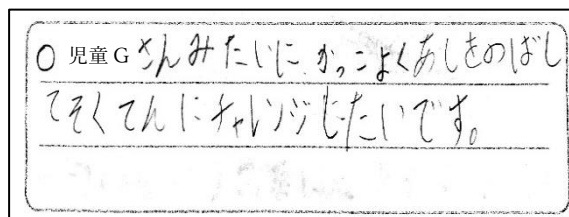 ○ 児童G さんみたいに かっこよくあしをのばし
てそくてんにチャレンジしたいです。